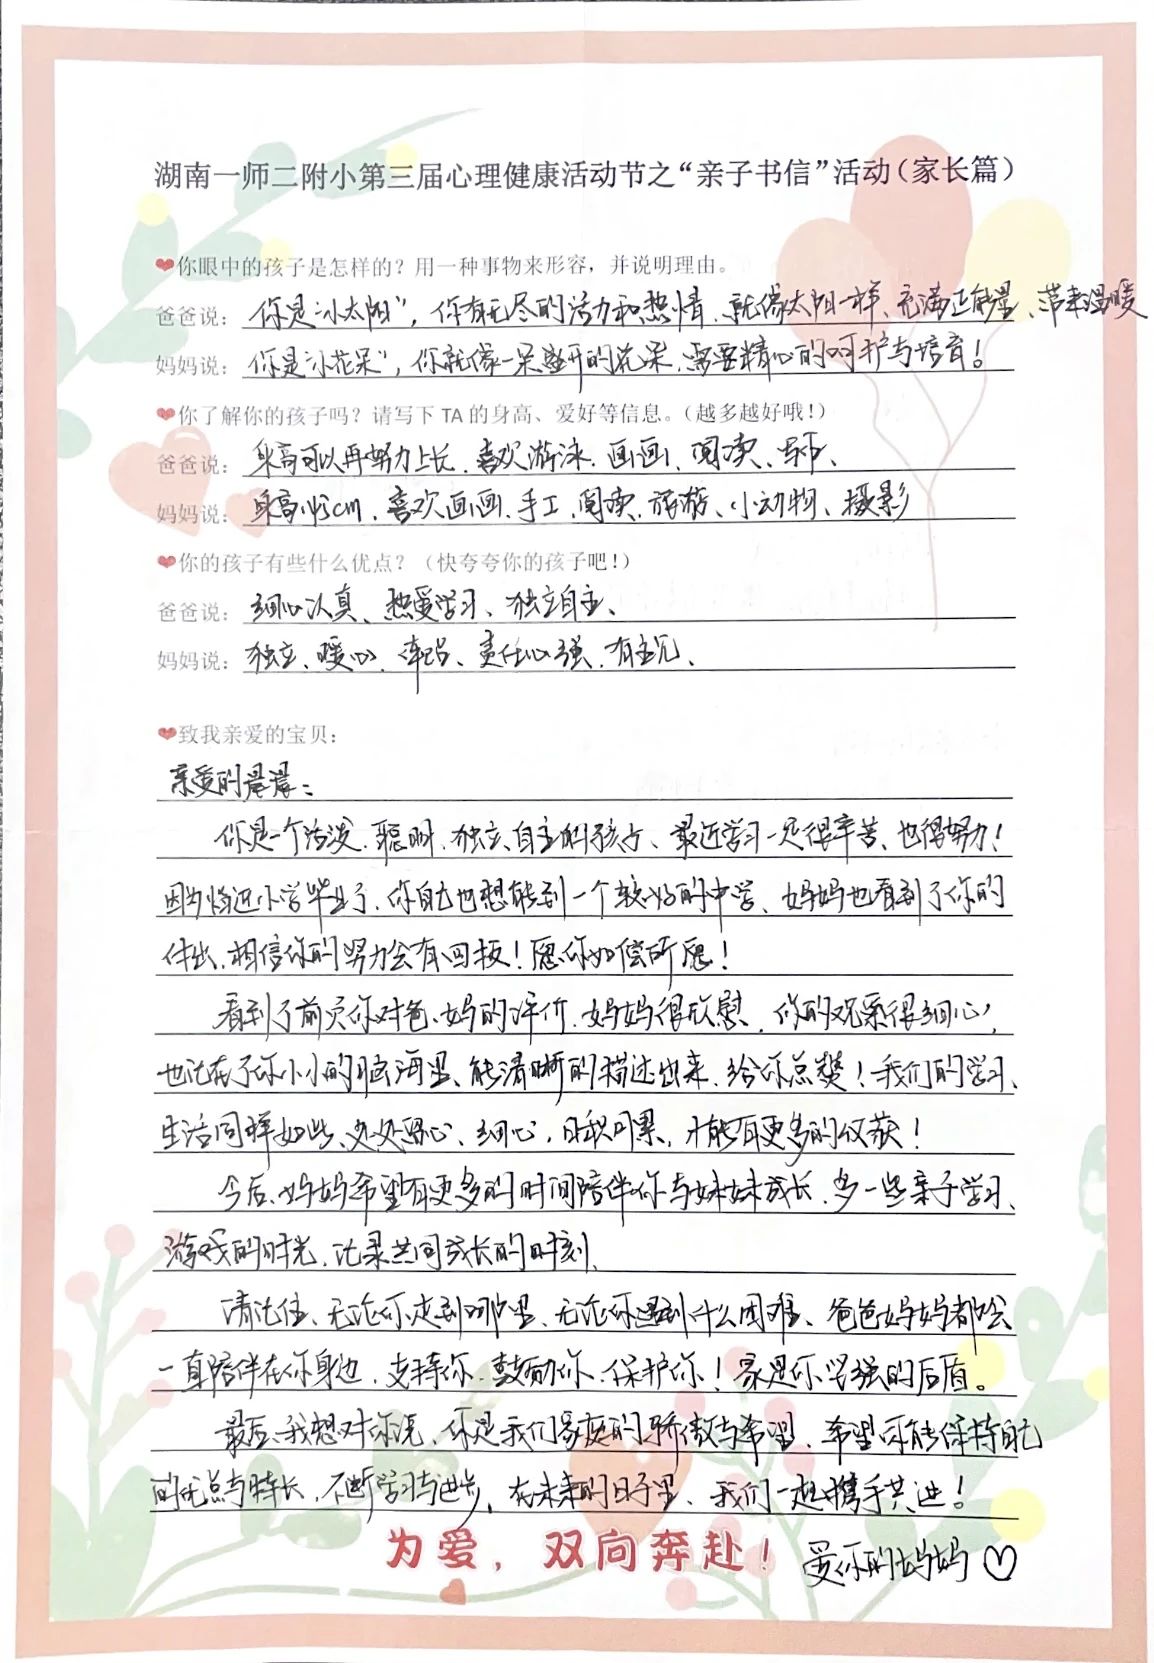 湖南一师二附小第三届心理健康活动节之“亲子书信”活动（家长篇）
❤你眼中的孩子是怎样的？用一种事物来形容，并说明理由。
爸爸说：你是“小太阳”，你有无尽的活力和热情、就像太阳一样、充满正能量、带来温暖
妈妈说：你是“小花朵”，你就像一朵盛开的花朵、需要精心的呵护与培育！
❤你了解你的孩子吗？请写下TA的身高、爱好等信息。（越多越好哦！）
爸爸说：身高可以再努力上长、喜欢游泳、画画、阅读、
妈妈说：身高145cm、喜欢画画、手工、阅读、旅游、小动物、摄影
❤你的孩子有些什么优点？（快夸夸你的孩子吧！）
爸爸说：细心认真、热爱学习、独立自主、
妈妈说：独立、暖心、责任心强、有主见、
❤致我亲爱的宝贝：
亲爱的晨晨：
你是一个活泼、聪明、独立、自主的孩子、最近学习一定很辛苦、也很努力！
因为临近小学毕业了、你自己也想能到一个较好的中学、妈妈也看到了你的
付出、相信你的努力会有回报！愿你如偿所愿！
看到了前页你对爸、妈的评价、妈妈很欣慰、你的观察很细心，
也记在了你小小的脑海里、能清晰的描述出来、给你点赞！我们的学习、
生活同样如此、处处留心、细心，日积月累，才能有更多的收获！
今后、妈妈希望有更多的时间陪伴你与妹妹成长、多一些亲子学习、
游戏的时光、记录共同成长的时刻、
请记住、无论你走到哪里、无论你遇到什么困难、爸爸妈妈都会
一直陪伴在你身边、支持你、鼓励你、保护你！家是你坚强的后盾。
最后、我想对你说、你是我们家庭的骄傲与希望、希望你能保持自己
的优点与特长、不断学习与进步、在未来的日子里、我们一起携手共进！
为爱，双向奔赴！
爱你的妈妈♡